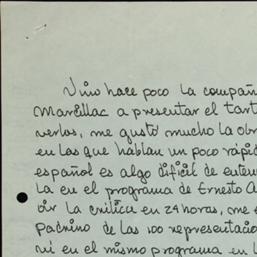 Vino hace poco la compañ
Marcillac a presentar el Tart
verlos, me gustó mucho la obr
en las que hablan un poco rápid
español es algo dificil de enten
la en el programa de Ernesto A
oir la critica en 24 horas, me
padrino de las 100 representacio
vi en el mismo programa en l